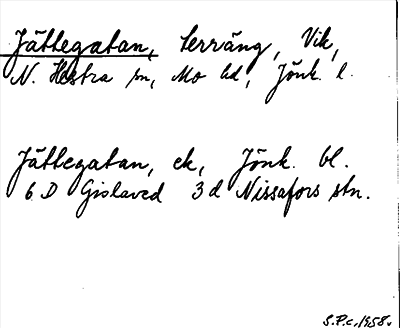 Jättegatan, terräng, Vik,
N. Hestra sn, Mo hd, Jönk. l.
Jättegatan, ek, Jönk. bl.
6 D Gislaved 3 d Nissafors stn.
S.P.c. 1958.